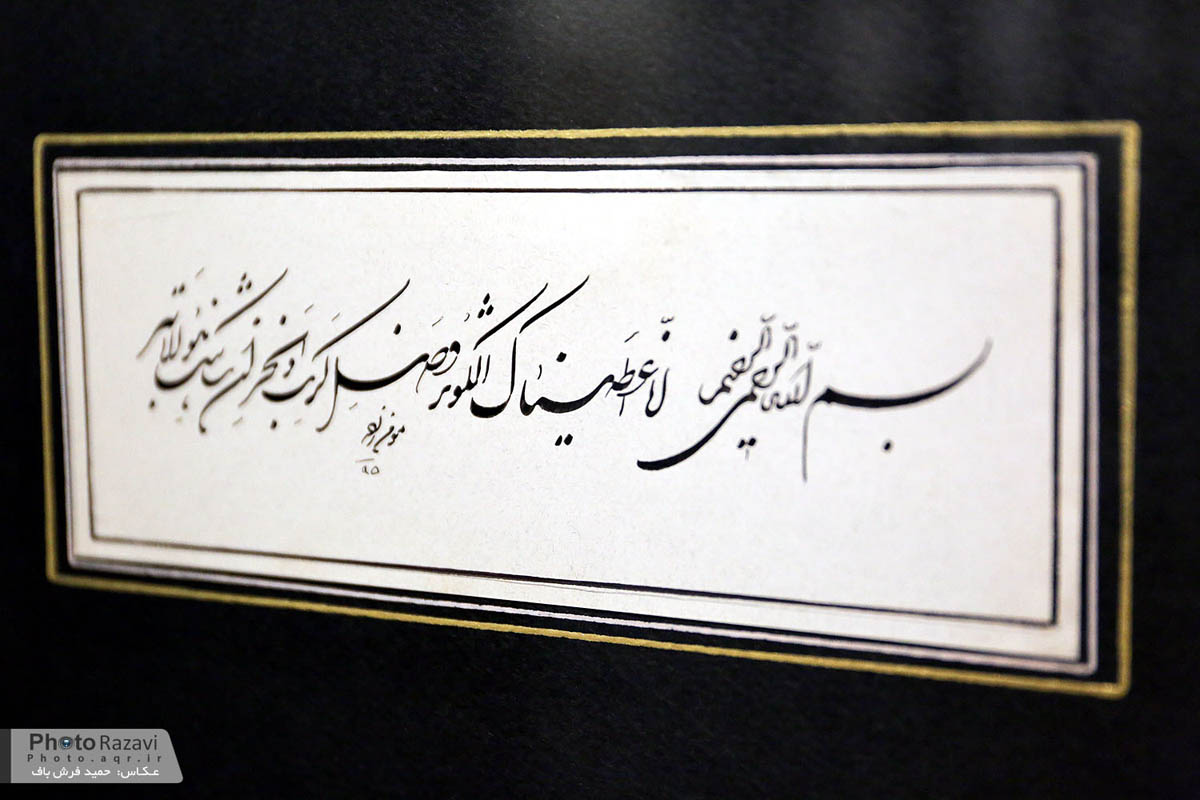 بسم الله الرحمن الرحیم انا اعطیناک الکوثر فصل لربک وانحر ان شانئک هو الابتر
۹۵
PhotoRazavi
Photo.aqr.ir
عکاس: حمید فرش باف